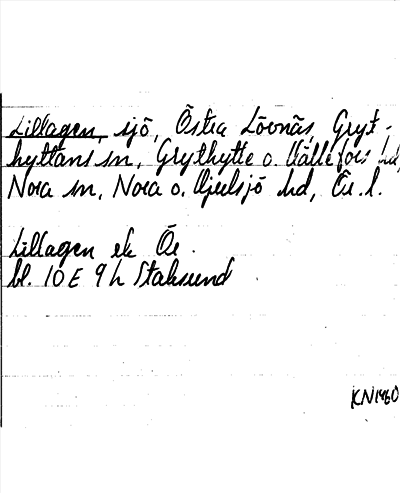 Lillagen, sjö, Östra Lövnäs, Gryt-
hyttans sn, Grythytte o. Hällefors hd,
Nora sn, Nora o. Hjulsjö hd, Ör. l.

Lillagen ek Ör
bl. 10 E 9 h Stalsund

KN1960